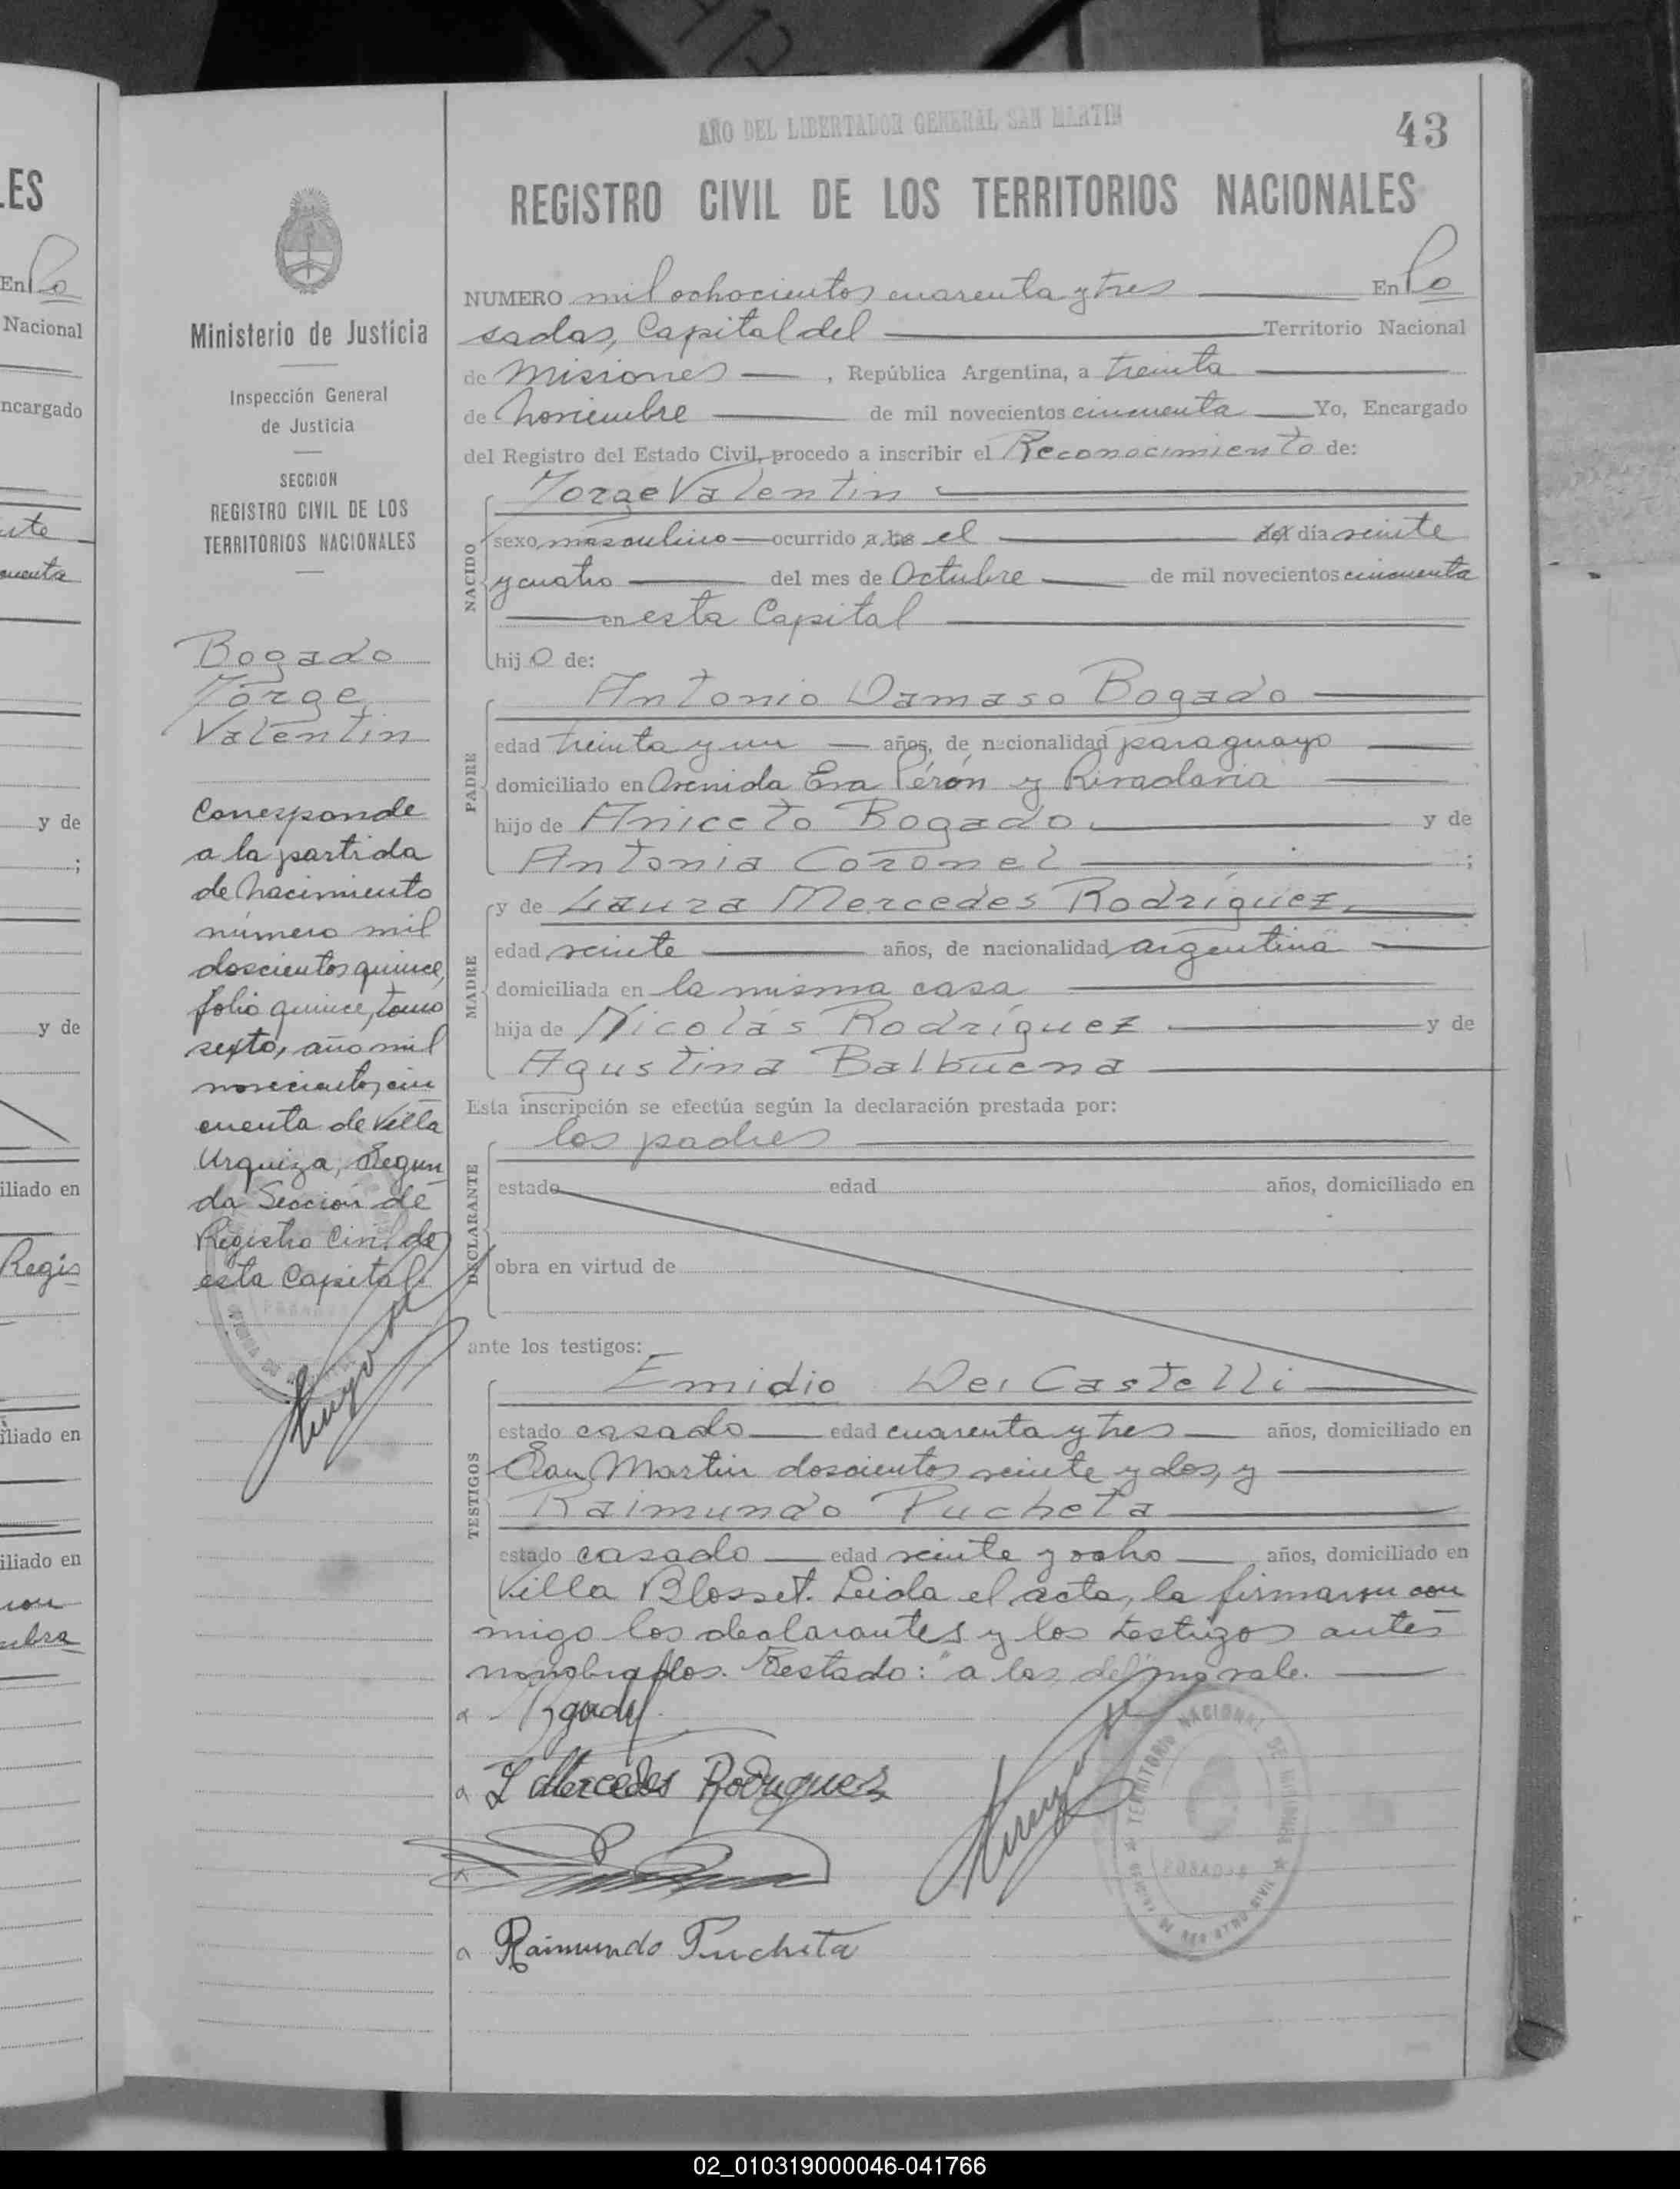 AÑO DEL LIBERTADOR GENERAL SAN MARTIN
43
REGISTRO CIVIL DE LOS TERRITORIOS NACIONALES
NUMERO mil ochocientos cuarenta y tres En Po
sadas, Capital del Territorio Nacional
de Misiones, República Argentina, a treinta
de Noviembre de mil novecientos cincuenta Yo, Encargado
del Registro del Estado Civil, procedo a inscribir el Reconocimiento de:
Jorge Valentin
NACIDO
sexo masculino ocurrido a las el del día veinte
y cuatro del mes de Octubre de mil novecientos cincuenta
en esta Capital
hijo de:
PADRE
Antonio Damaso Bogado
edad treinta y un años, de nacionalidad paraguayo
domiciliado en Avenida Eva Perón y Rivadavia
hijo de Aniceto Bogado y de
Antonia Coronel ;
MADRE
y de Laura Mercedes Rodríguez
edad veinte años, de nacionalidad argentina
domiciliada en la misma casa
hija de Nicolás Rodríguez y de
Agustina Balbuena
Esta inscripción se efectúa según la declaración prestada por:
DECLARANTE
los padres
estado edad años, domiciliado en
obra en virtud de
ante los testigos:
TESTIGOS
Emidio Dei Castelli
estado casado edad cuarenta y tres años, domiciliado en
San Martin doscientos veinte y dos, y
Raimundo Pucheta
estado casado edad veinte y ocho años, domiciliado en
Villa Blosset. Leida el acta, la firmaron con
migo los declarantes y los testigos antes
nombrados. Testado: "a las, del" no vale.
a Bgado
a L Mercedes Rodriguez
a
a Raimundo Pucheta
TERRITORIO NACIONAL DE MISIONES
POSADAS
OFICINA DE REGISTRO CIVIL
Ministerio de Justicia
Inspección General
de Justicia
SECCION
REGISTRO CIVIL DE LOS
TERRITORIOS NACIONALES
Bogado
Jorge
Valentin
Corresponde
a la partida
de Nacimiento
número mil
doscientos quince,
folio quince, tomo
sexto, año mil
novecientos cin
cuenta de Villa
Urquiza, Segun
da Sección de
Registro Civil de
esta Capital.
ES
En Po
Nacional
ncargado
y de
;
y de
iliado en
Regis
iliado en
iliado en
02_010319000046-041766